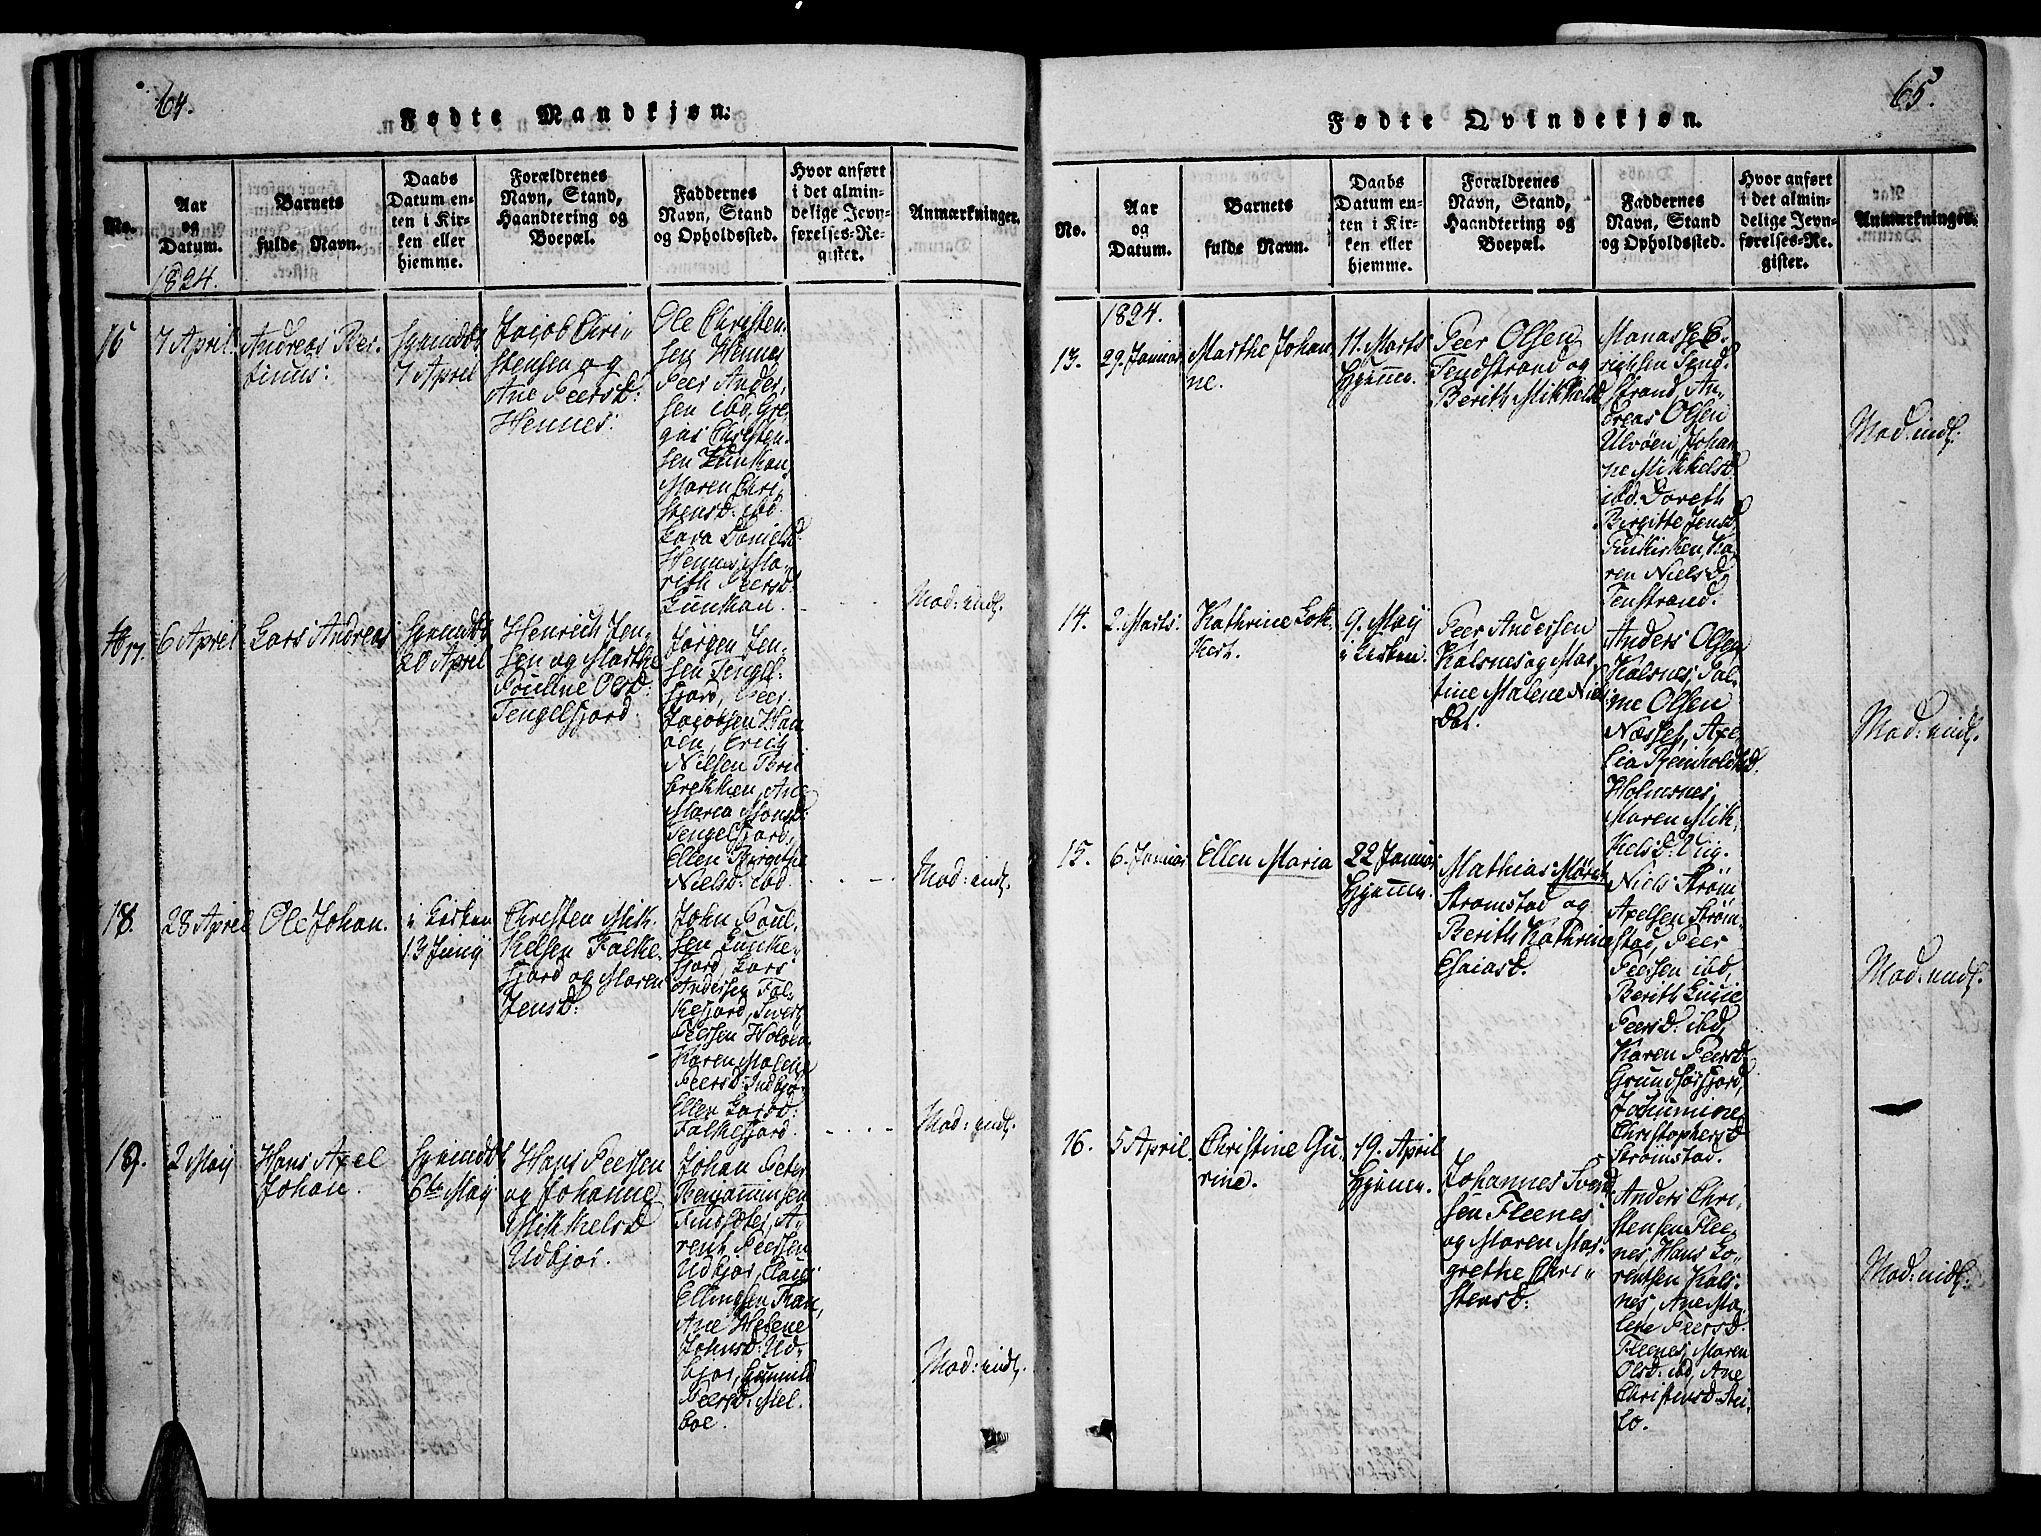 64.
Fødte Mandkjøn:
No.
Aar
og
Datum.
Barnets
fulde Navn.
Daabs
Datum en-
ten i Kir-
ken eller
hjemme.
Forældrenes
Navn, Stand,
Haandtering og
Boepæl.
Faddernes
Navn, Stand
og Opholdssted.
Hvor anført
i det almin-
delige Jevn-
førelses-Re-
gister.
Anmærkninger.
1824.
16
7 April
Andreas Ber-
tinus:
7 April
Jacob Chri-
stensen og
Ane Peersd:
Hennes:
Ole Christen-
sen Hennes
Peer Ander-
sen ibd, Gre-
gus Christen-
sen Lunkan,
Maren Chri-
stensd: ibd.
Lava Daniels
Hennes, Ma-
rith Peersd:
Lunkan.
Mod: indl.
17.
6 April
Lars Andreas
20 April
Henrich Jen-
sen og Marthe
Pouline Olsd:
Tengelfjord
Jørgen Jen-
sen Tengel-
fjord, Peer
Jacobsen Han-
øen, Erich
Nilsen
brekken, Ane
Maria Monsd:
Tengelfjord,
Ellen Birgithe
Nielsd: ibd.
Mod: indl.
18.
28 April
Ole Johan.
i Kirken
13 Junij
Christen Mik-
kelsen Falke-
fjord og Maren
Jensd:
John Poul-
sen Lunke-
fjord, Lars
Andersen Fal-
kefjord, Sivert
Peersen Holøen
Karen Malene
Peersd: Indkjø-
Ellen Larsd:
Falkefjord.
Mod: indl.
19.
2 Maij
Hans Axel
Johan.
6te Maij
Hans Peersen
og Johanne
Mikkelsd
Udkjør.
Johan Peter
Benjaminsen
Findsæter, A-
rent Peersen
Udkjør, Claus
Ellingsen Kan,
Ane Helene
Johnsd: Ud-
kjør, Gunnild
Peersd: Mel-
boe.
Mod: indl.
65.
Fødte Qvindekjøn.
No.
Aar
og
Datum.
Barnets
fulde Navn.
Daabs
Datum en-
ten i Kir-
ken eller
hjemme.
Forældrenes
Navn, Stand,
Haandtering og
Boepæl.
Faddernes
Navn, Stand
og Opholdssted.
Hvor anført
i det almin-
delige Jevn-
førelses-Re-
gister.
Anmærkninger.
1824.
13.
29. Januar
Marthe Johan
ne.
11. Marts
Hjemme.
Peer Olsen
Tendstrand og
Berith Mikkelsd
Manasse E-
richsen Tend-
strand, An-
dreas Olsen
Ulvøen, Johan
ne Mikkelsd
ibd. Doreth
Birgitte Jensd
Finkirken, Ka-
ren Nielsd
Tenstrand.
Mod: indl:
14.
2. Marts.
Kathrine Lok-
kert.
9. Maij
i Kirken.
Peer Andersen
Kalsnes og Mar-
tine Malene Niels
dat.
Anders Olsen
Kalsnes, Sal-
me Olsen
Næsset, Axe-
lia Reinholdtsd.
Holmsnes,
Maren Mik-
kelsd. Vig.
Mod: indl.
15.
6. Januar
Ellen Maria
22 Januar
Hjemme.
Mathias
Stromstad og
Berith Kathrine
Esaiasd.
Niels Strøm
Axelsen Strøm-
stad, Peer
Peersen ibd,
Berith Lucie
Peersd: ibd,
Karen Peersd:
Grundførfjord,
Christophersd
Stromstad.
Mod: indl.
16.
5 April.
Christine Gu-
rine.
19. April
Hjemme.
Johannes Svend
sen Fleenes
og Maren Mar-
grethe Chri-
stensd:
Anders Chri-
stensen Flee-
nes, Hans Lo-
rentsen Kals-
nes, Ane Ma-
lene Peersd:
Fleenes, Maren
Olsd: ibd, Ane
Christensd.
Mod: indl.